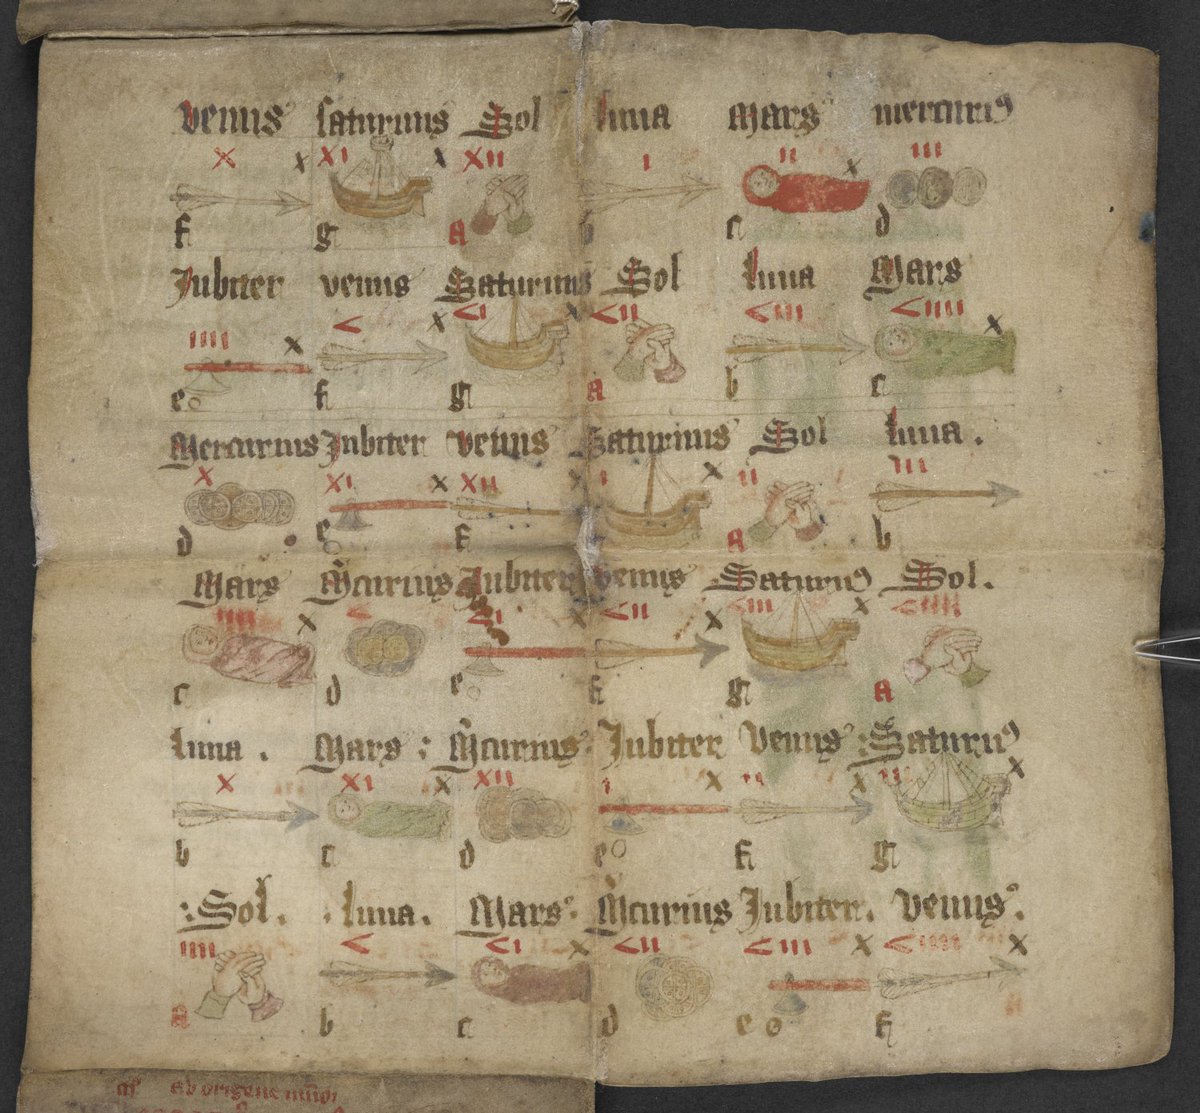 Venus Saturnus Sol Luna Mars Mercurius
X X XI X XII I II X III
f g A b c d
Jubiter venus Saturnus Sol Luna Mars
IIII X < X <I X <II <III <IIII X
e f g A b c
Mercurius Jubiter venus Saturnus Sol Luna.
X XI X XII X I X II III
d e f g A b
Mars M̄curius Jubiter venus Saturnus Sol.
IIII X < <I X <II X <III X <IIII
c d e f g A
Luna. Mars: M̄curius: Jubiter Venus: Saturnus
X XI X XII I X II X III X
b c d e f g
:Sol. :Luna. Mars: M̄curius Jubiter. Venus.
IIII < <I X <II <III X <IIII X
A b c d e f